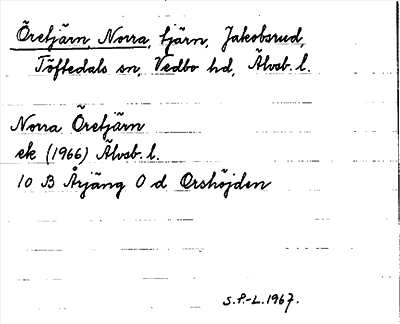 Öretjärn, Norra, tjärn, Jakobsrud,
Töftedals sn, Vedbo hd, Älvsb. l.
Norra Öretjärn
ek (1966) Älvsb. l.
10 B Årjäng 0 d Orshöjden
S.P.-L. 1967.